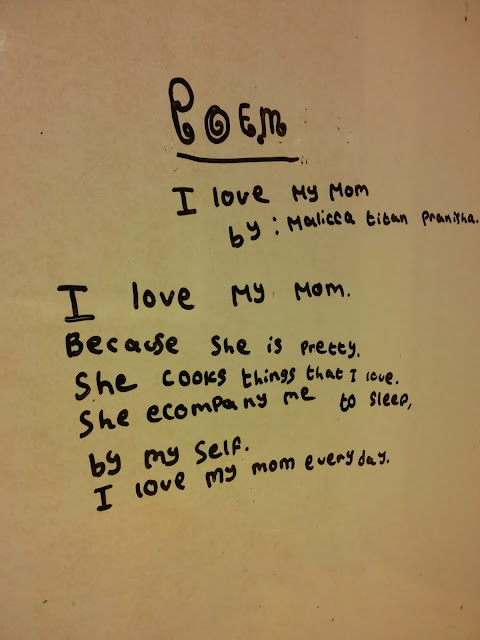 Poem
I love My Mom
by : Malicca titan Pranisha.
I love My Mom.
Because She is Pretty.
She cooks things that I love.
She ecompany me to sleep,
by my self.
I love my mom everyday.